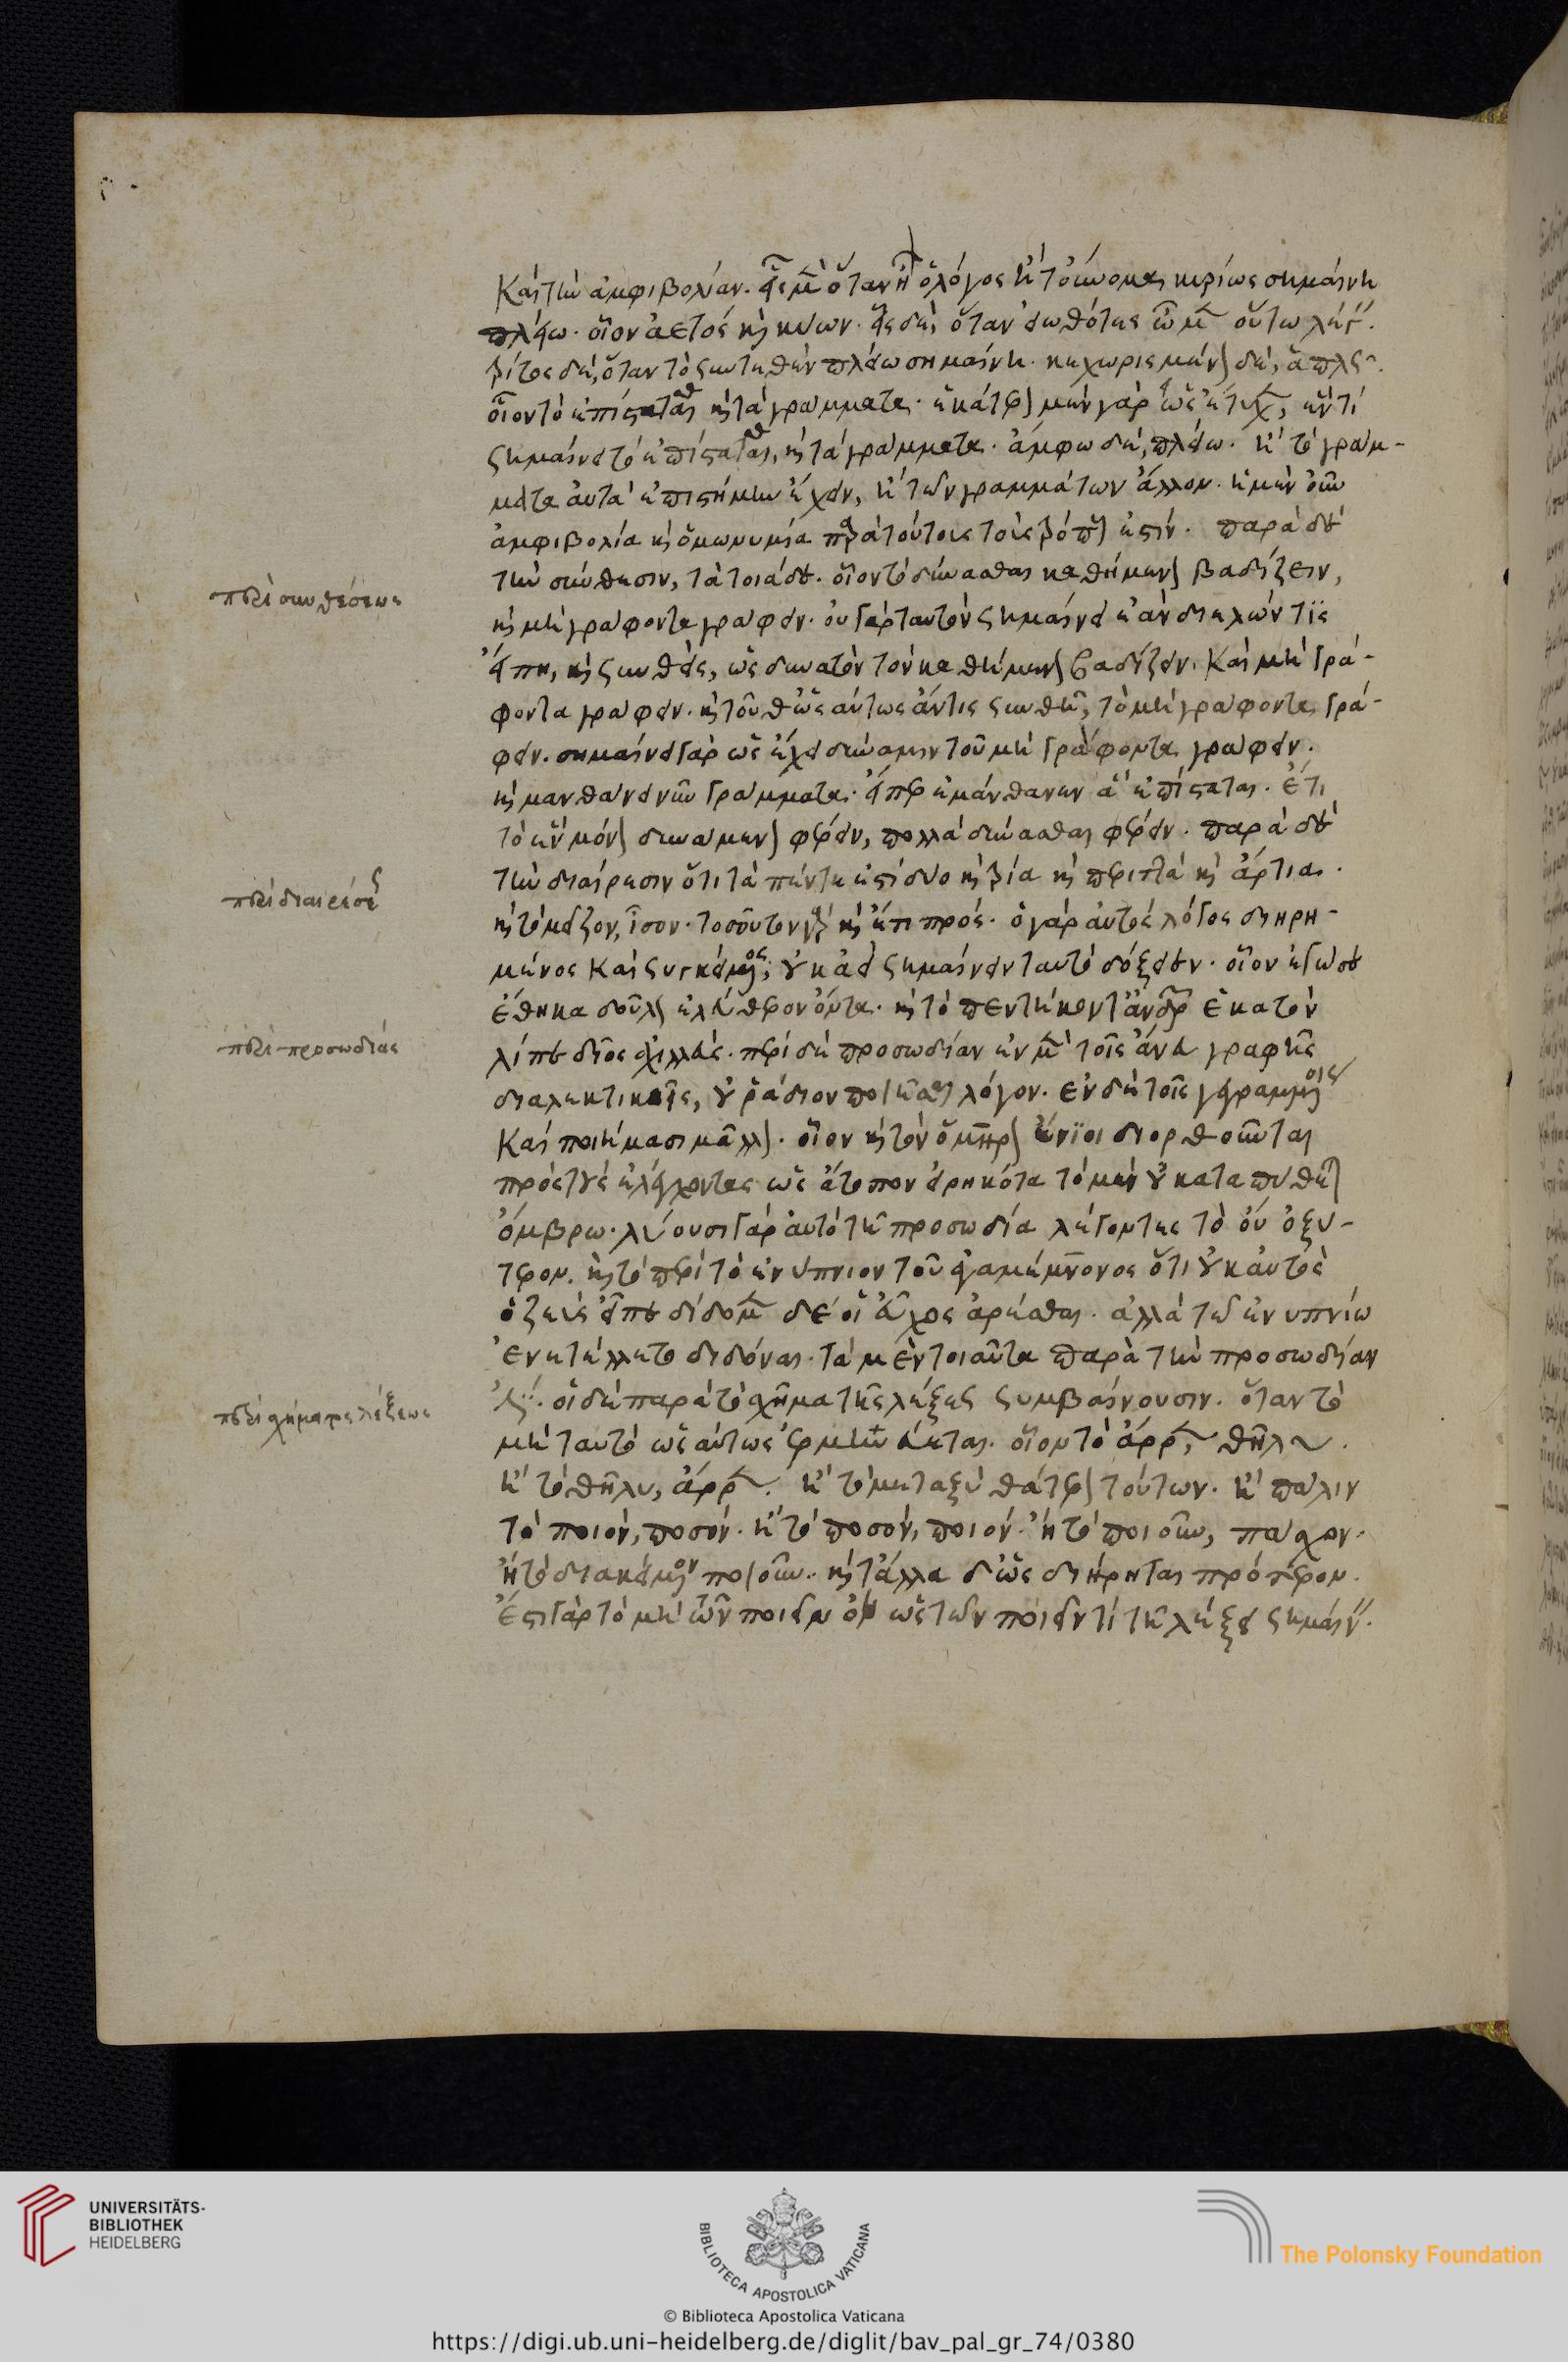 Καὶ τὴν ἀμφιβολίαν. εἷς μὲν ὅταν ἢ ὁ λόγος ἢ τοὔνομα κυρίως σημαίνη
πλείω. οἷον ἀετὸς καὶ κύων. εἷς δὲ, ὅταν εἰωθότες ὦμεν οὕτω λέγειν.
τρίτος δὲ, ὅταν τὸ συντεθὲν πλείω σημαίνη. κεχωρισμένον δὲ, ἁπλῶς.
οἷον τὸ ἐπίστασθαι καὶ τὰ γράμματα. ἑκάτερον μὲν γὰρ εἰ ὡς ἔτυχεν, ἕν τι
σημαίνει τὸ ἐπίστασθαι, καὶ τὰ γράμματα. ἄμφω δὲ, πλείω. ἢ τὸ γράμ-
ματα αὐτὰ ἐπιστήμην ἔχειν, ἢ τῶν γραμμάτων ἄλλον. ἡ μὲν οὖν
ἀμφιβολία καὶ ὁμωνυμία παρὰ τούτους τοὺς τρόπους ἐστίν. παρὰ δὲ
περὶ συνθέσεως
τὴν σύνθεσιν, τὰ τοιάδε. οἷον τὸ δύνασθαι καθήμενον βαδίζειν,
καὶ μὴ γράφοντα γράφειν. οὐ γὰρ ταυτὸν σημαίνει ἐὰν διελών τις
εἴπη, καὶ συνθεὶς, ὡς δυνατὸν τὸν καθήμενον βαδίζειν. Καὶ μὴ γρά-
φοντα γράφειν. καὶ τοῦθ' ὡσαύτως ἄν τις συνθῆ, τὸ μὴ γράφοντα γρά-
φειν. σημαίνει γὰρ ὡς ἔχει δύναμιν τοῦ μὴ γράφοντα γράφειν.
καὶ μανθάνει νῦν γράμματα. εἴπερ ἐμάνθανεν ἃ ἐπίσταται. ἔτι
τὸ ἓν μόνον δυνάμενον φέρειν, πολλὰ δύνασθαι φέρειν. παρὰ δὲ
περὶ διαιρέσεως
τὴν διαίρεσιν ὅτι τὰ πέντε ἐστὶ δύο καὶ τρία καὶ περιττὰ καὶ ἄρτια.
καὶ τὸ μεῖζον, ἴσον. τοσοῦτον γὰρ καὶ ἔτι πρός. ὁ γὰρ αὐτὸς λόγος διηρη-
μένος καὶ συγκείμενος, οὐκ ἀεὶ σημαίνειν ταυτὸ δόξειεν. οἷον ἐγώ σε
ἔθηκα δοῦλον ἐλεύθερον ὄντα. καὶ τὸ πεντήκοντ' ἀνδρῶν ἑκατὸν
περὶ προσωδίας
λίπε δῖος ἀχιλλεύς. περὶ δὲ προσωδίαν ἐν μὲν τοῖς ἄνευ γραφῆς
διαλεκτικοῖς, οὐ ῥάδιον ποιῆσαι λόγον. ἐν δὲ τοῖς γεγραμμένοις
Καὶ ποιήμασι μᾶλλον. οἷον καὶ τὸν ὅμηρον ἔνιοι διορθοῦνται
πρὸς τοὺς ἐλέγχοντας ὡς ἄτοπον εἰρηκότα τὸ μὲν οὐ καταπύθεται
ὄμβρω. λύουσι γὰρ αὐτὸ τῆ προσωδία λέγοντες τὸ οὐ ὀξύ-
τερον. καὶ τὸ περὶ τὸ ἐνύπνιον τοῦ ἀγαμέμνονος ὅτι οὐκ αὐτὸς
ὁ ζεὺς εἶπε δίδομεν δέ οἱ εὖχος ἀρέσθαι. ἀλλὰ τῶ ἐνυπνίω
ἐνετέλλετο διδόναι. τὰ μὲν τοιαῦτα παρὰ τὴν προσωδίαν
περὶ σχήματος λέξεως
ἐστίν. οἱ δὲ παρὰ τὸ σχῆμα τῆς λέξεως συμβαίνουσιν. ὅταν τὸ
μὴ ταυτὸ ὡσαύτως ἑρμηνεύεται. οἷον τὸ ἄρρεν, θῆλυ.
ἢ τὸ θῆλυ, ἄρρεν. ἢ τὸ μεταξὺ θάτερον τούτων. ἢ πάλιν
τὸ ποιὸν, ποσόν. ἢ τὸ ποσὸν, ποιόν. ἢ τὸ ποιοῦν, πάσχον.
ἢ τὸ διακείμενον ποιοῦν. καὶ τἄλλα δ' ὡς διήρηται πρότερον.
Ἔστι γὰρ τὸ μὴ τῶν ποιεῖν ὂν ὡς τῶν ποιεῖν τί τῆ λέξει σημαίνειν.
UNIVERSITÄTS-
BIBLIOTHEK
HEIDELBERG
BIBLIOTECA APOSTOLICA VATICANA
The Polonsky Foundation
© Biblioteca Apostolica Vaticana
https://digi.ub.uni-heidelberg.de/diglit/bav_pal_gr_74/0380